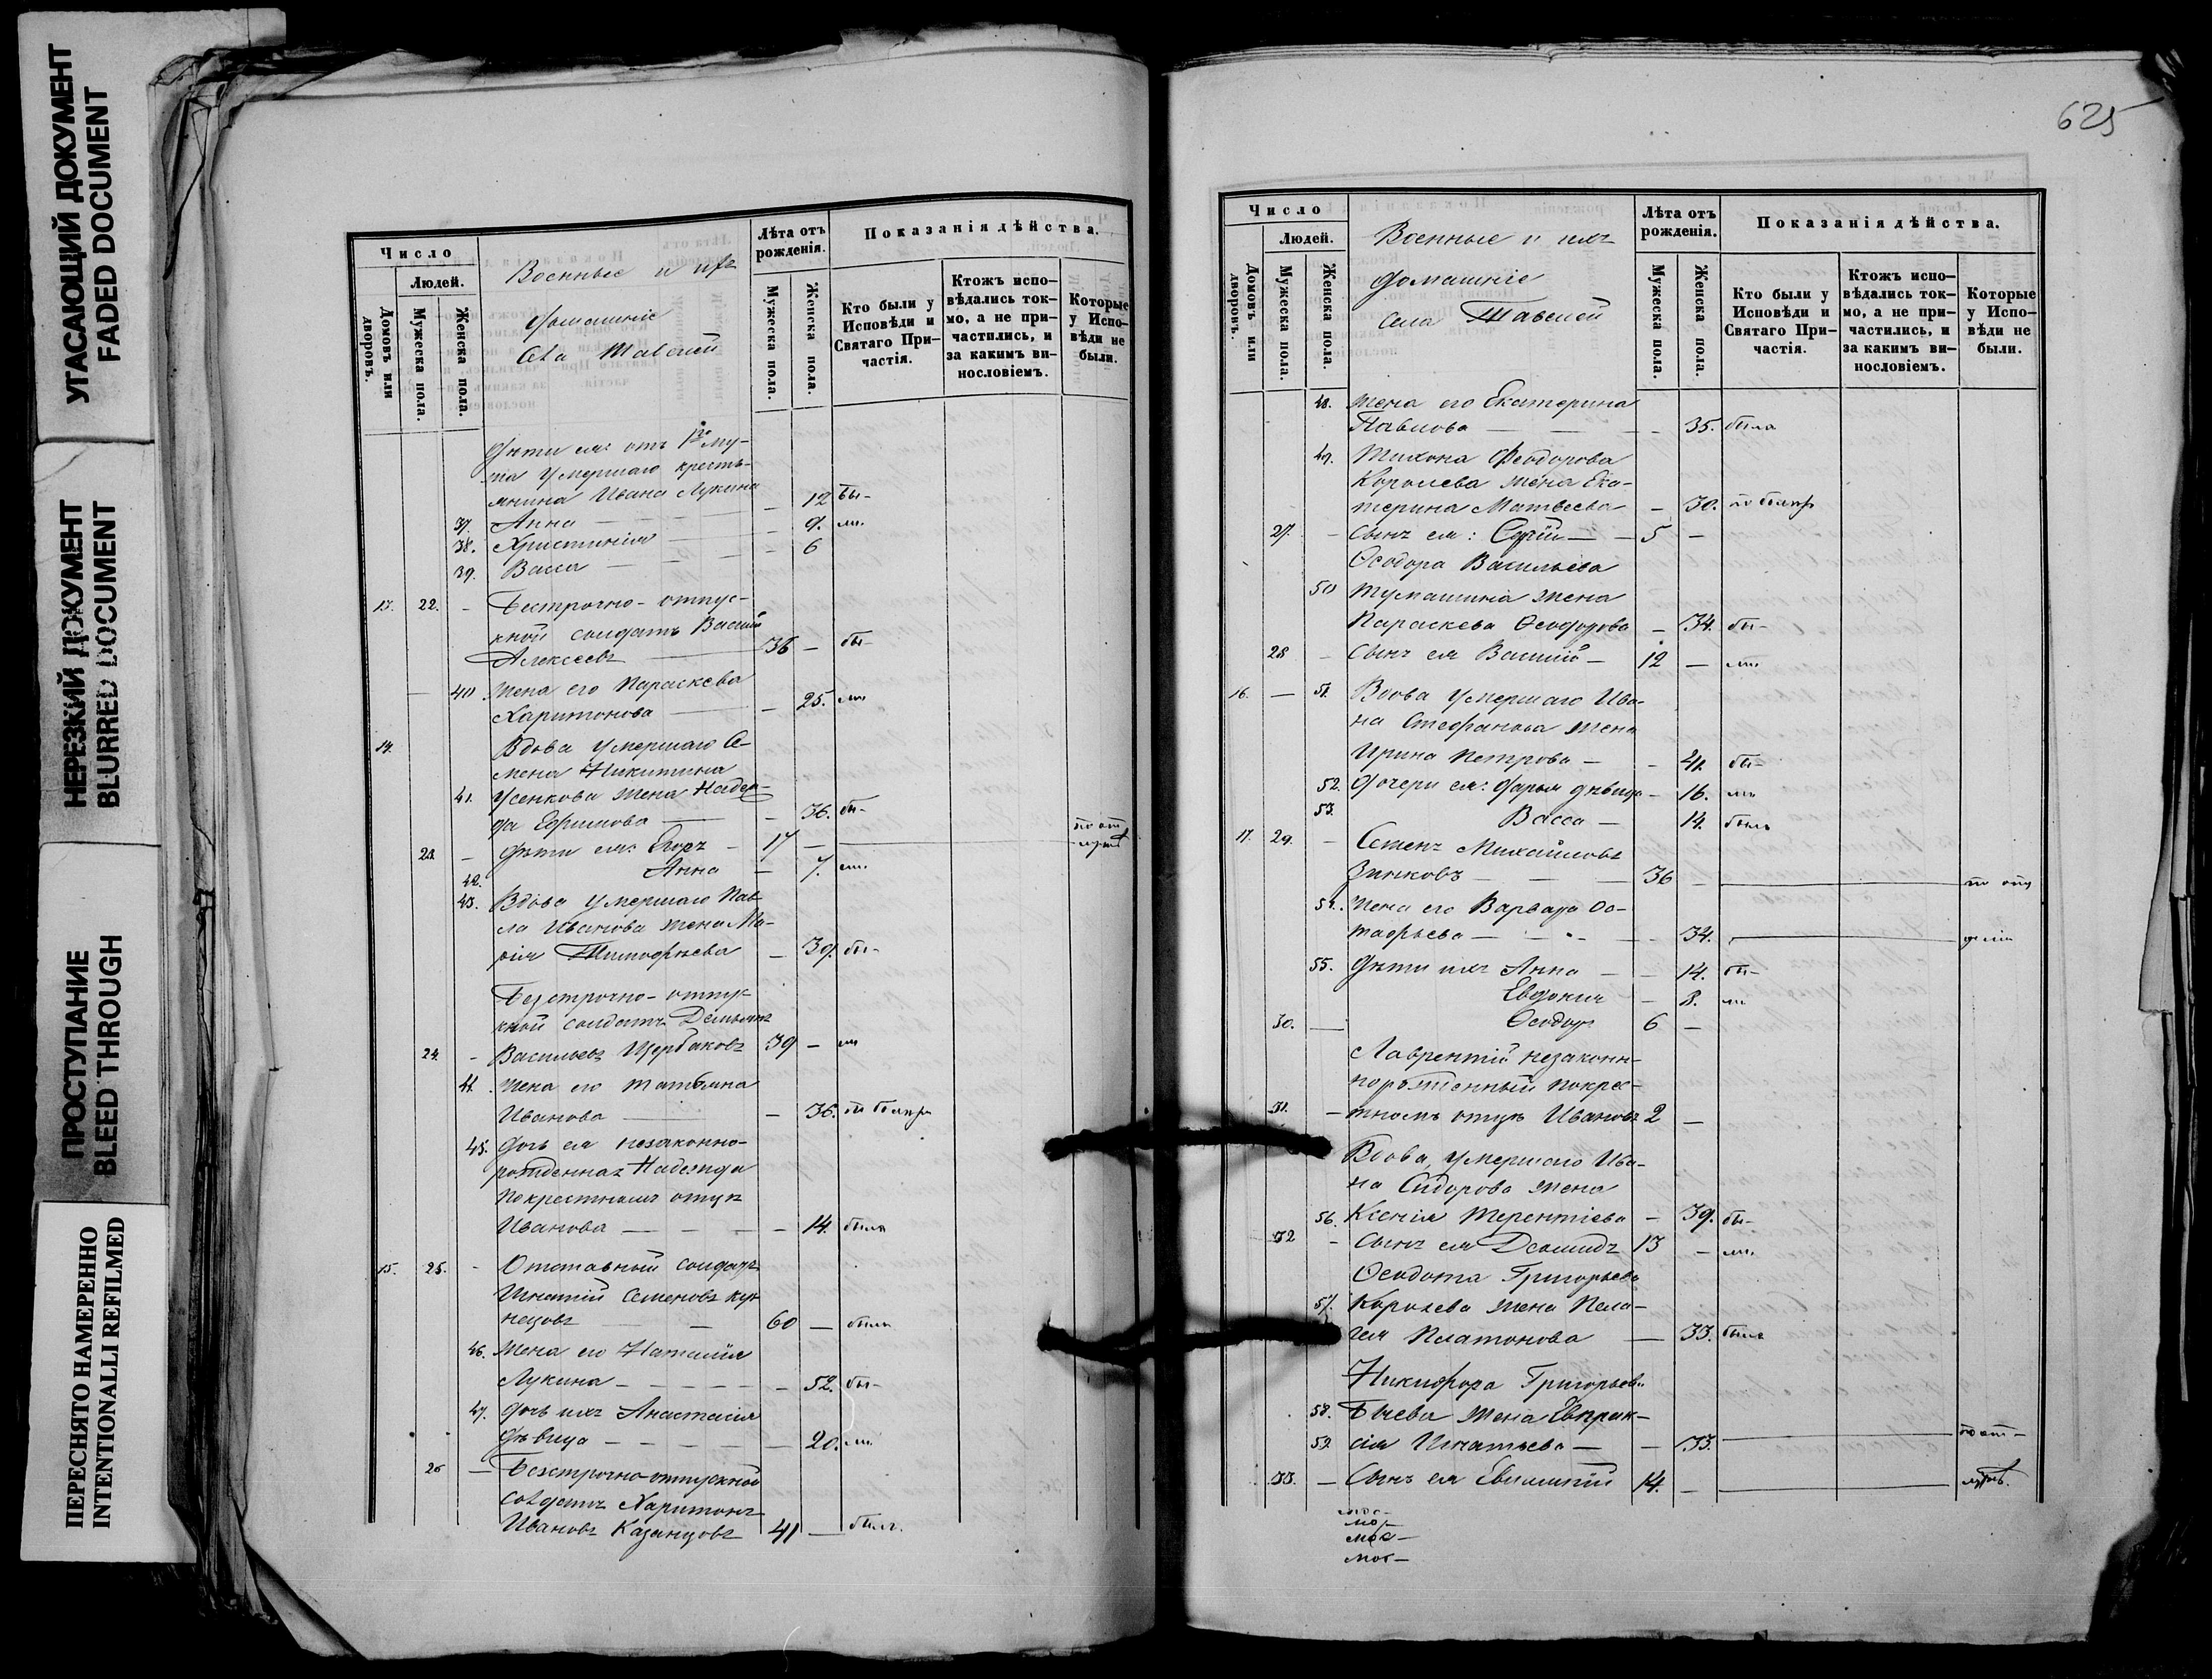 УГАСАЮЩИЙ ДОКУМЕНТ
FADED DOCUMENT
НЕРЕЗКИЙ ДОКУМЕНТ
BLURRED DOCUMENT
ПРОСТУПАНИЕ
BLEED THROUGH
ПЕРЕСНЯТО НАМЕРЕННО
INTENTIONALLI REFILMED
Число
Людей.
Домовъ или дворовъ.
Мужеска пола.
Женска пола.
Военные и ихъ
домашніе
Лѣта отъ рожденія.
Мужеска пола.
Женска пола.
Показанія дѣйства.
Кто были у Исповѣди и Святаго Причастія.
Ктожъ исповѣдались токмо, а не причастились, и за какимъ винословіемъ.
Которые у Исповѣди не были.
Дѣти ея: отъ 1го му-
жа умершаго кресть-
янина Ивана Лукина
37. Анна — 12 бы-
38. Христинія — 9. ли.
39. Васса — 6
13. 22. - Безсрочно-отпус-
кной солдатъ Василій
Алексеевъ — 36 — бы-
— 40 Жена его Параскева
Харитонова — 25. ли
14. Вдова умершаго Се-
мена Никитина
41. Усенкова жена Надеж-
да Ефимова — 36. бы-
23. - Дѣти ея: Егоръ - 17 — по от-
42. Анна — 7. ли.
43. Вдова умершаго Пав-
ла Иванова жена Ма-
рія Тимофѣева — 39. бы-
Безсрочно-отпус-
кной солдатъ Демьянъ
24. - Васильевъ Щербаковъ 39 — ли
44. Жена его Татьяна
Иванова — 36.
45. Дочь ея незаконно-
рожденная Надежда
по крестному отцу
Иванова — 14. была
15. 25. - Отставный солдатъ
Игнатій Семеновъ Куз-
нецовъ — 60 — былъ
46. Жена его Наталія
Лукина — 52. бы-
47. Дочь ихъ Анастасія
дѣвица — 20. ли
26 — Безсрочно-отпускной
солдатъ Харитонъ
Ивановъ Казанцовъ 41 — былъ.
625
Число
Людей.
Домовъ или дворовъ.
Мужеска пола.
Женска пола.
Военные и ихъ
домашніе
села
Лѣта отъ рожденія.
Мужеска пола.
Женска пола.
Показанія дѣйства.
Кто были у Исповѣди и Святаго Причастія.
Ктожъ исповѣдались токмо, а не причастились, и за какимъ винословіемъ.
Которые у Исповѣди не были.
48. Жена его Екатерина
Павлова — 35. была
49. Тихона Феодорова
Королева жена Ека-
терина Матвеева — 30.
27. - Сынъ ея: — 5 —
Ѳеодора Васильева
50 жена
Параскева Ѳеодорова — 34. бы-
28 - Сынъ ея Василій — 12 — ли
16. — 51. Вдова умершаго Ива-
на Стефанова жена
Ирина Петрова — 41. бы-
52. Дочери ея: Дарья дѣвица — 16. ли
53. Васса — 14. была
17. 29. - Семенъ Михайловъ
Зинковъ — 36 —
54. Жена его Варвара Ос-
тафьева — 34.
55. Дѣти ихъ Анна — 14. бы-
Евдокія — 8. ли
30. — Ѳеодоръ 6 —
Лаврентій незаконн-
норожденный по крес-
31. - тномъ отцѣ Ивановъ 2 —
Вдова, умершаго Ива-
на Сидорова жена
56. Ксенія Терентіева — 39. бы-
32 - Сынъ ея Деомидъ 13 — ли.
Ѳеодота Григорьева
57. Королева жена Пела-
гея Платонова — 33. была
Никифора Григорьев.
58. Бычева жена Евпрак-
59. сія Игнатьева — 33. по от-
33. — Сынъ ея 14. —